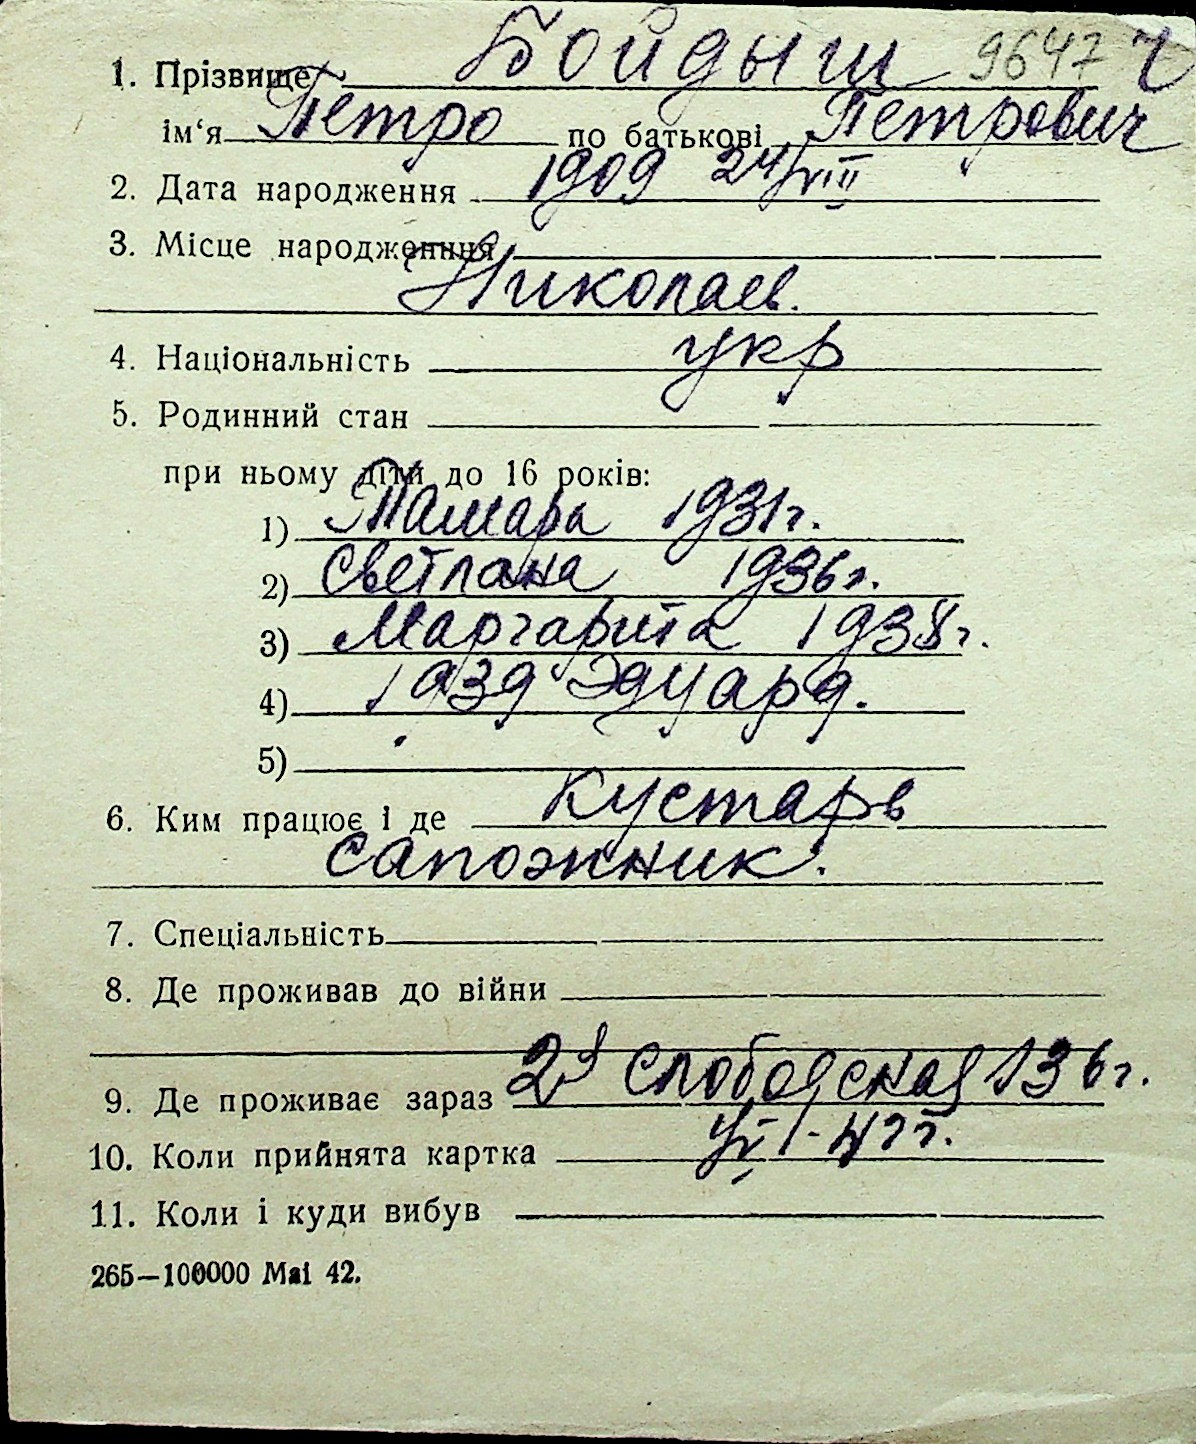 1. Прізвище Бойдыш 9647 ч
ім‘я Петро по батькові Петрович
2. Дата народження 1909 24/VIII
3. Місце народженння
Николаев.
4. Національність укр
5. Родинний стан
при ньому діти до 16 років:
1) Тамара 1931г.
2) Светлана 1936г.
3) Маргарита 1938г.
4) 1939 Эдуард.
5)
6. Ким працює і де Кустарь
сапожник.
7. Спеціальність
8. Де проживав до війни
9. Де проживає зараз 2я Слободская 136г.
10. Коли прийнята картка
11. Коли і куди вибув
265—100000 Mai 42.